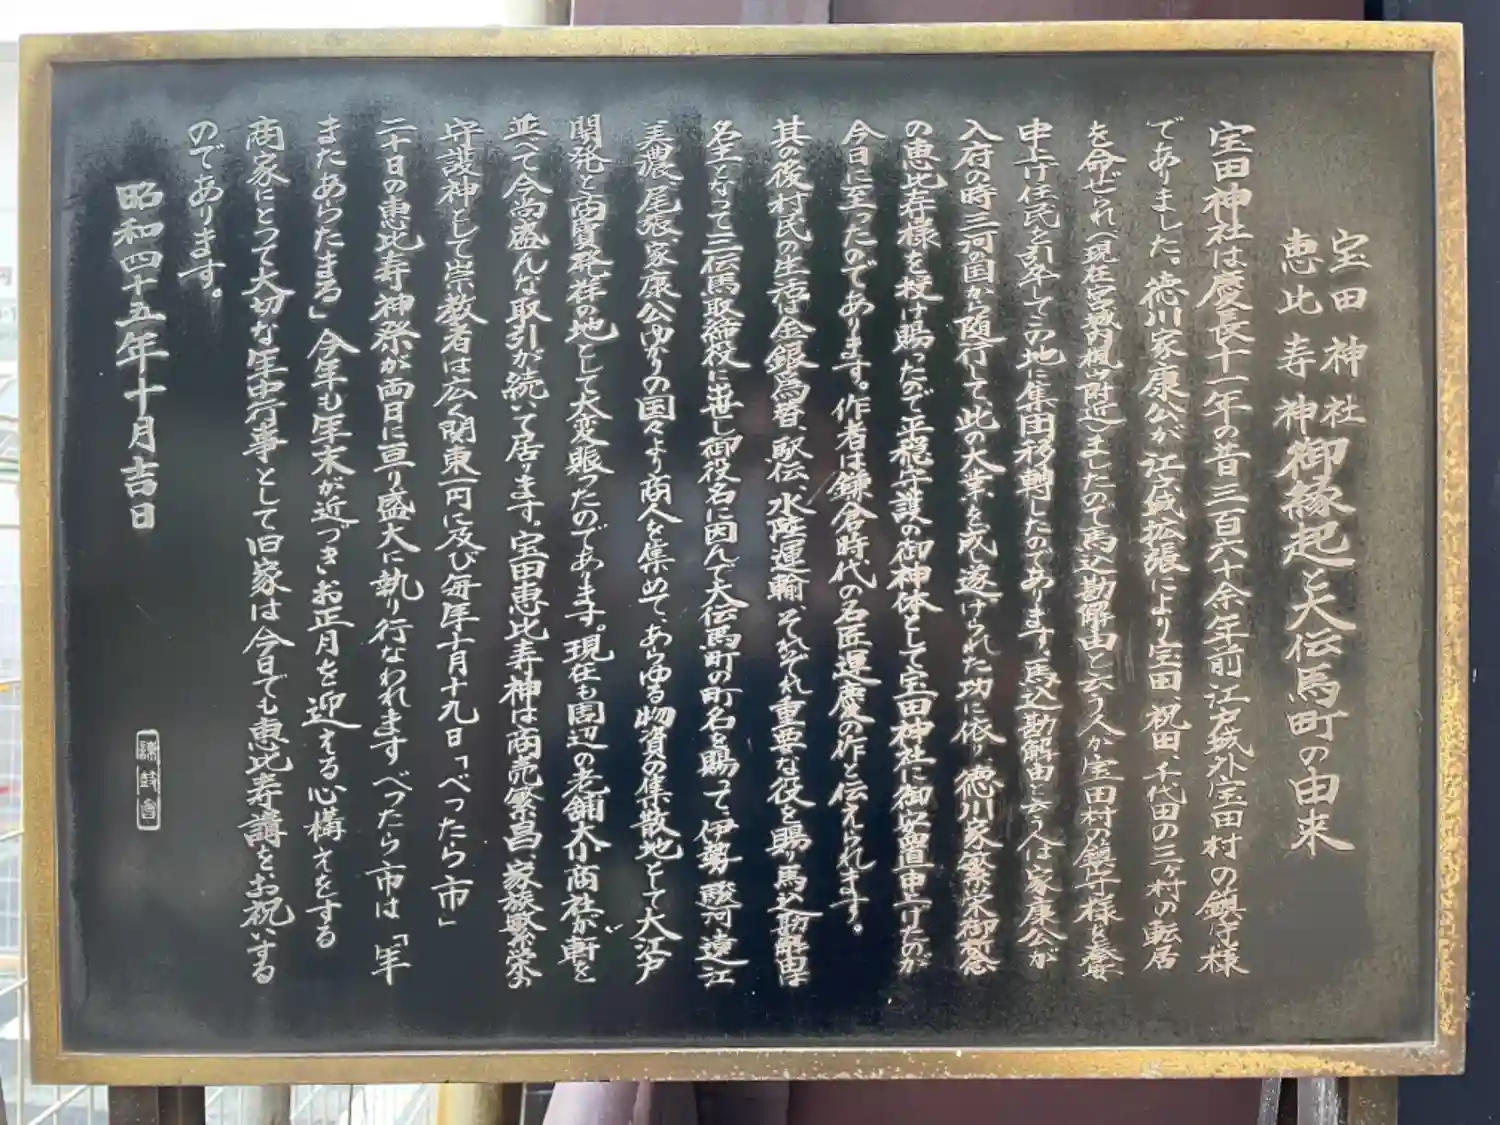 宝田神社
恵比寿神
御縁起と大伝馬町の由来
宝田神社は慶長十一年の昔三百六十余年前江戸城外宝田村の鎮守様
でありました。徳川家康公が江戸城拡張により宝田、祝田、千代田の三ヶ村の転居
を命ぜられ、(現在宮城前楓山附近)ましたので馬込勘解由と云う人が宝田村の鎮守様を奉安
申上げ住民を引率してこの地に集団移転したのであります。馬込勘解由と云う人は家康公が
入府の時三河の国から随行して此の大業を成し遂げられた功に依り、徳川家繁栄御祈念
の恵比寿様を授け賜ったので平穏守護の御神体として宝田神社に御安置申上げたのが
今日に至ったのであります。作者は鎌倉時代の名匠運慶の作と伝えられます。
其の後村民の生活は金銀為替、駅伝、水陸運輸、それぞれ重要な役を賜り馬込勘解由は
名主となって三伝馬取締役に出世し御役名に因んで大伝馬町の町名を賜って、伊勢、駿河、遠江
美濃、尾張、家康公ゆかりの国々より商人を集めて、あらゆる物資の集散地として大江戸
開発と商賣発祥の地として大変賑ったのであります。現在も周辺の老舗大小商社が軒を
並べて今尚盛んな取引が続いて居ります。宝田恵比寿神は商売繁昌、家族繁栄の
守護神として崇敬者は広く関東一円に及び毎年十月十九日「べったら市」
二十日の恵比寿神祭が両日に亘り盛大に執り行なわれますべったら市は「年
またあらたまる」今年も年末が近づきお正月を迎える心構えをする
商家にとって大切な年中行事として旧家は今日でも恵比寿講をお祝いする
のであります。
昭和四十五年十月吉日